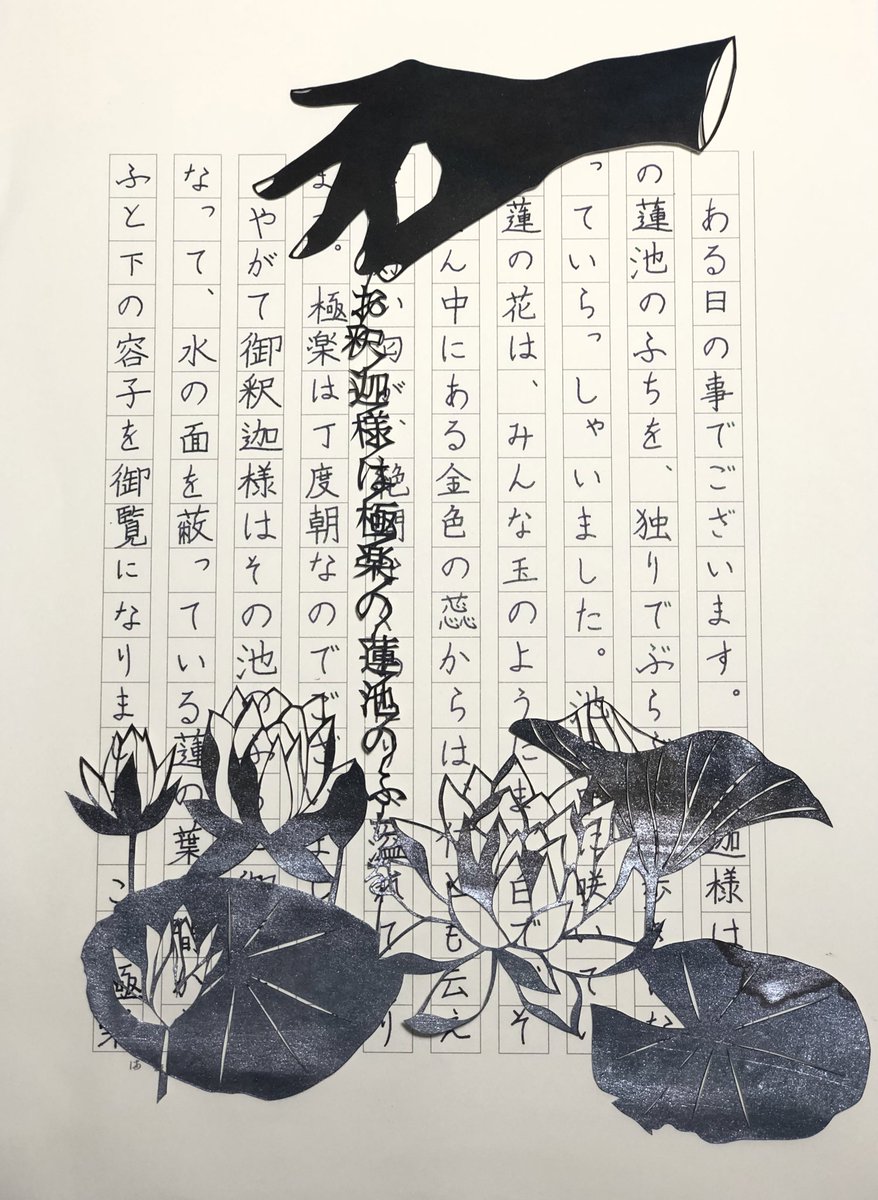 ある日の事でございます。迦様は
の蓮池のふちを、独りでぶら
っていらっしゃいました。池の咲いてい
蓮の花は、みんな玉のようにま白で、そ
ん中にある金色の蕊からは、何とも云え
い匂が、絶間
お釈迦様は極楽の蓮池のふ
ま。極楽は丁度朝なのでござい
やがて御釈迦様はその池の
なって、水の面を蔽っている蓮の葉の間か
ふと下の容子を御覧になりまこ極楽
は